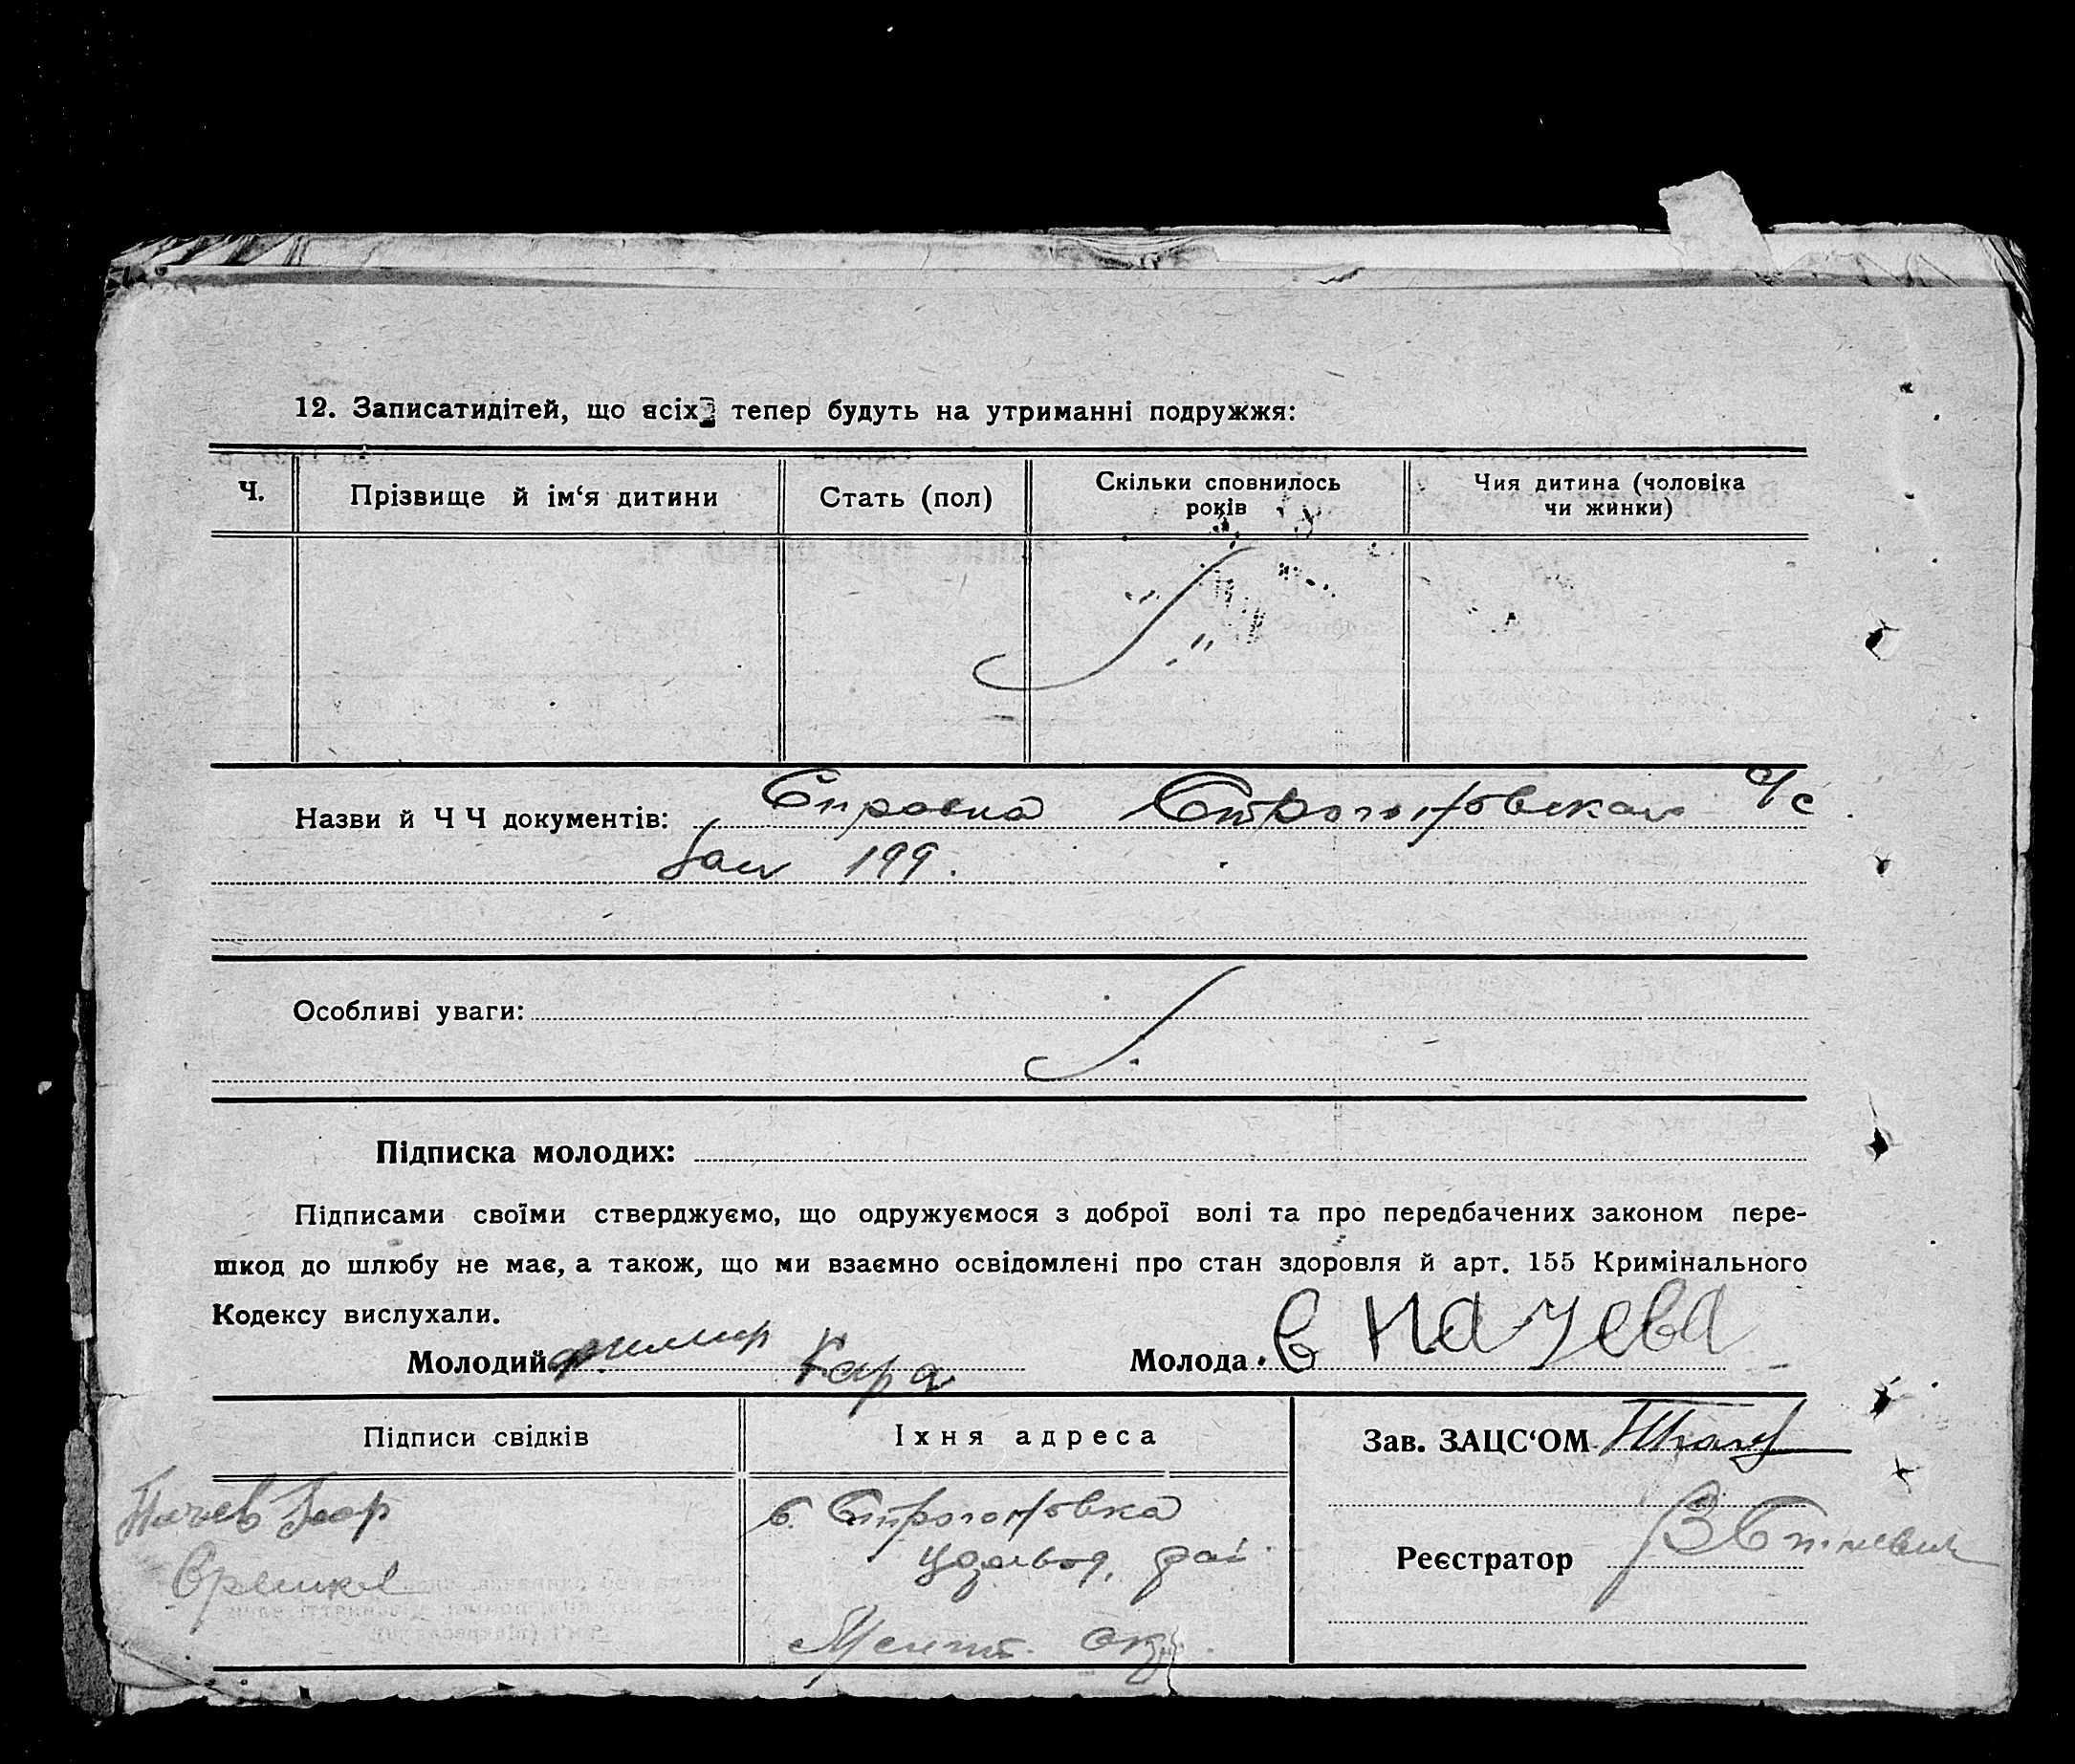 12. Записатидітей, що всіх тепер будуть на утриманні подружжя:
Ч.
Прізвище й ім‘я дитини
Стать (пол)
Скільки сповнилось
років
Чия дитина (чоловіка
чи жинки)
Назви й Ч Ч документів: Справка Строгоновская с/с
199.
Особливі уваги:
Підписка молодих:
Підписами своїми стверджуємо, що одружуємося з доброї волі та про передбачених законом пере-
шкод до шлюбу не має, а також, що ми взаємно освідомлені про стан здоровля й арт. 155 Кримінального
Кодексу вислухали.
Молодий Кара
Молода Е Начева
Підписи свідків
Їхня адреса
Зав. ЗАЦС‘ОМ
с. Строгоновка
Реєстратор
Меліт. окр.